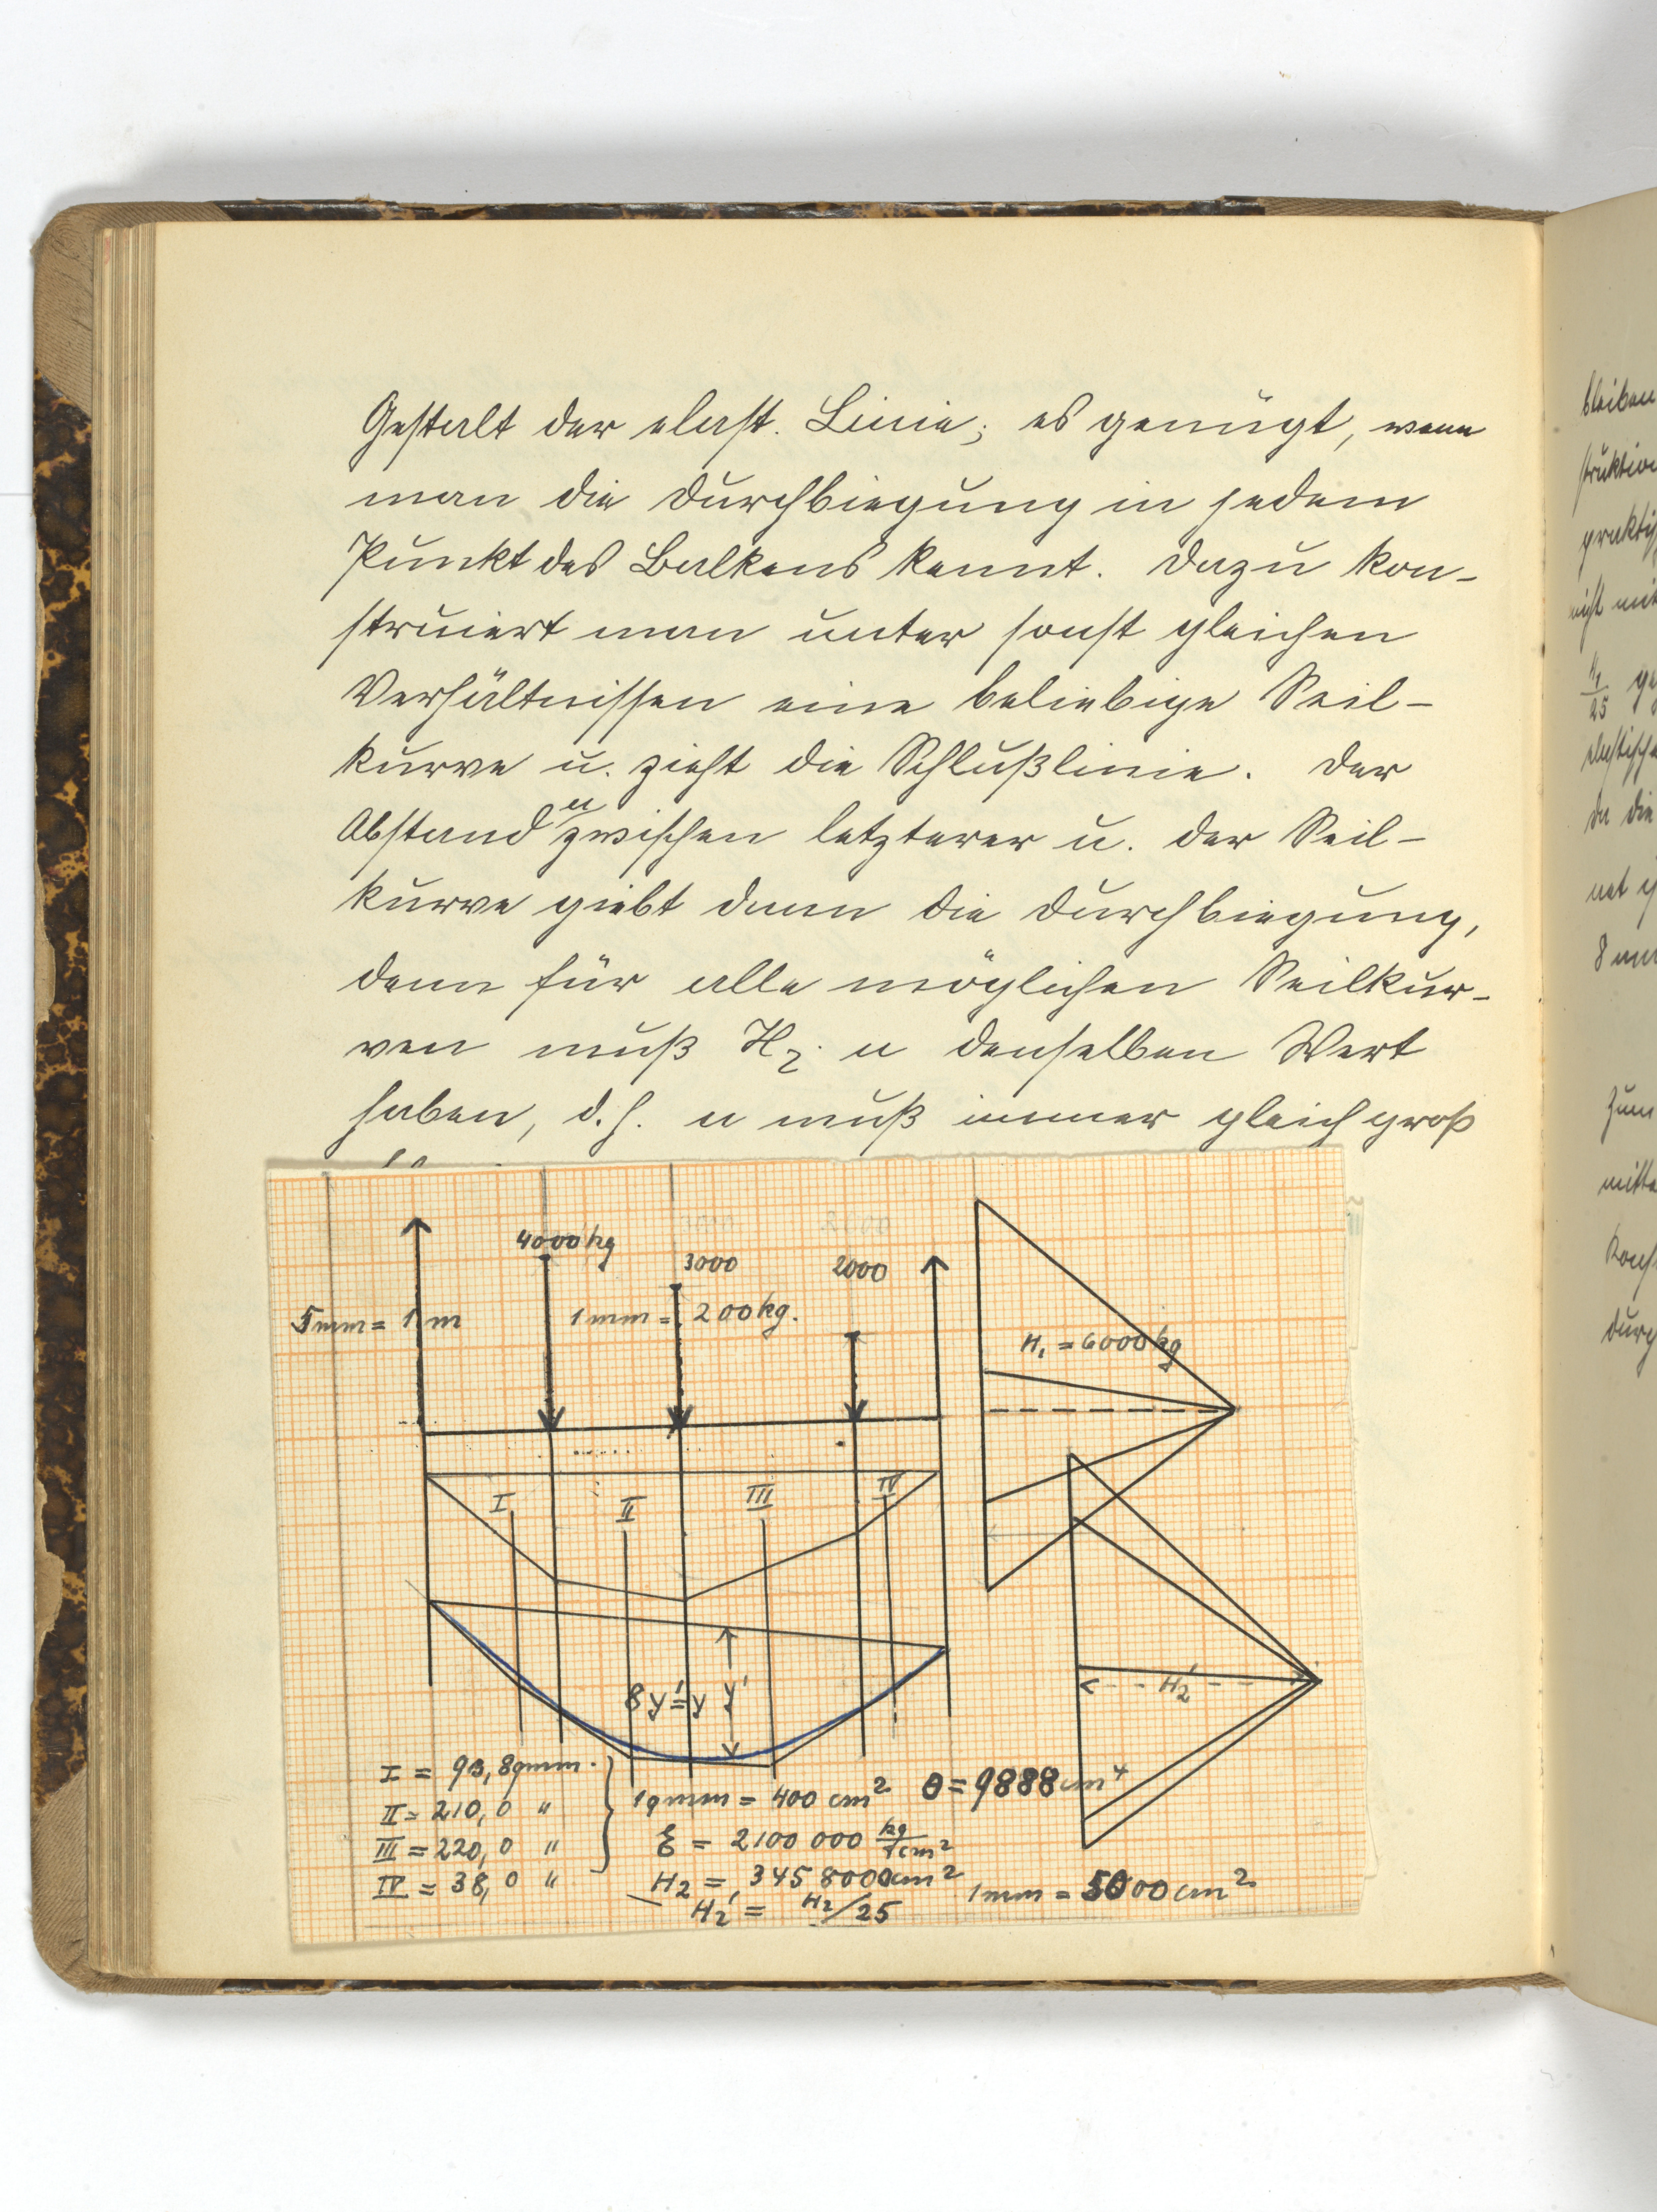 Gestalt der elast. Linie; es genügt, wenn
man die Durchbiegung in jedem
Punkt des Balkens kennt. Dazu kon-
struiert man unter sonst gleichen
Verhältnissen eine beliebige Seil-
kurve u. zieht die Schlußlinie. Der
Abstand u zwischen letzterer u. der Seil-
kurve giebt dann die Durchbiegung,
denn für alle möglichen Seilkur-
ven muß H₂· u denselben Wert
haben, d.h. u muß immer gleich groß
4000 kg
3000
2000
5mm = 1m
1mm = 200kg.
H₁ = 6000kg
I
II
III
IV
8y' = y
y'
H₂'
I = 93,8qmm.
II = 210,0 "
III = 220,0 "
IV = 38,0 "
1qmm = 400 cm²
Θ = 9888 cm⁴
E = 2100 000 kg/cm²
H₂ = 3458000cm²
H₂' = H₂/25
1mm = 5000 cm²
bleiben
struktion
praktisch
nicht mit
25
elastische
da die
8 mm
Zum
mitte
Konst
durch